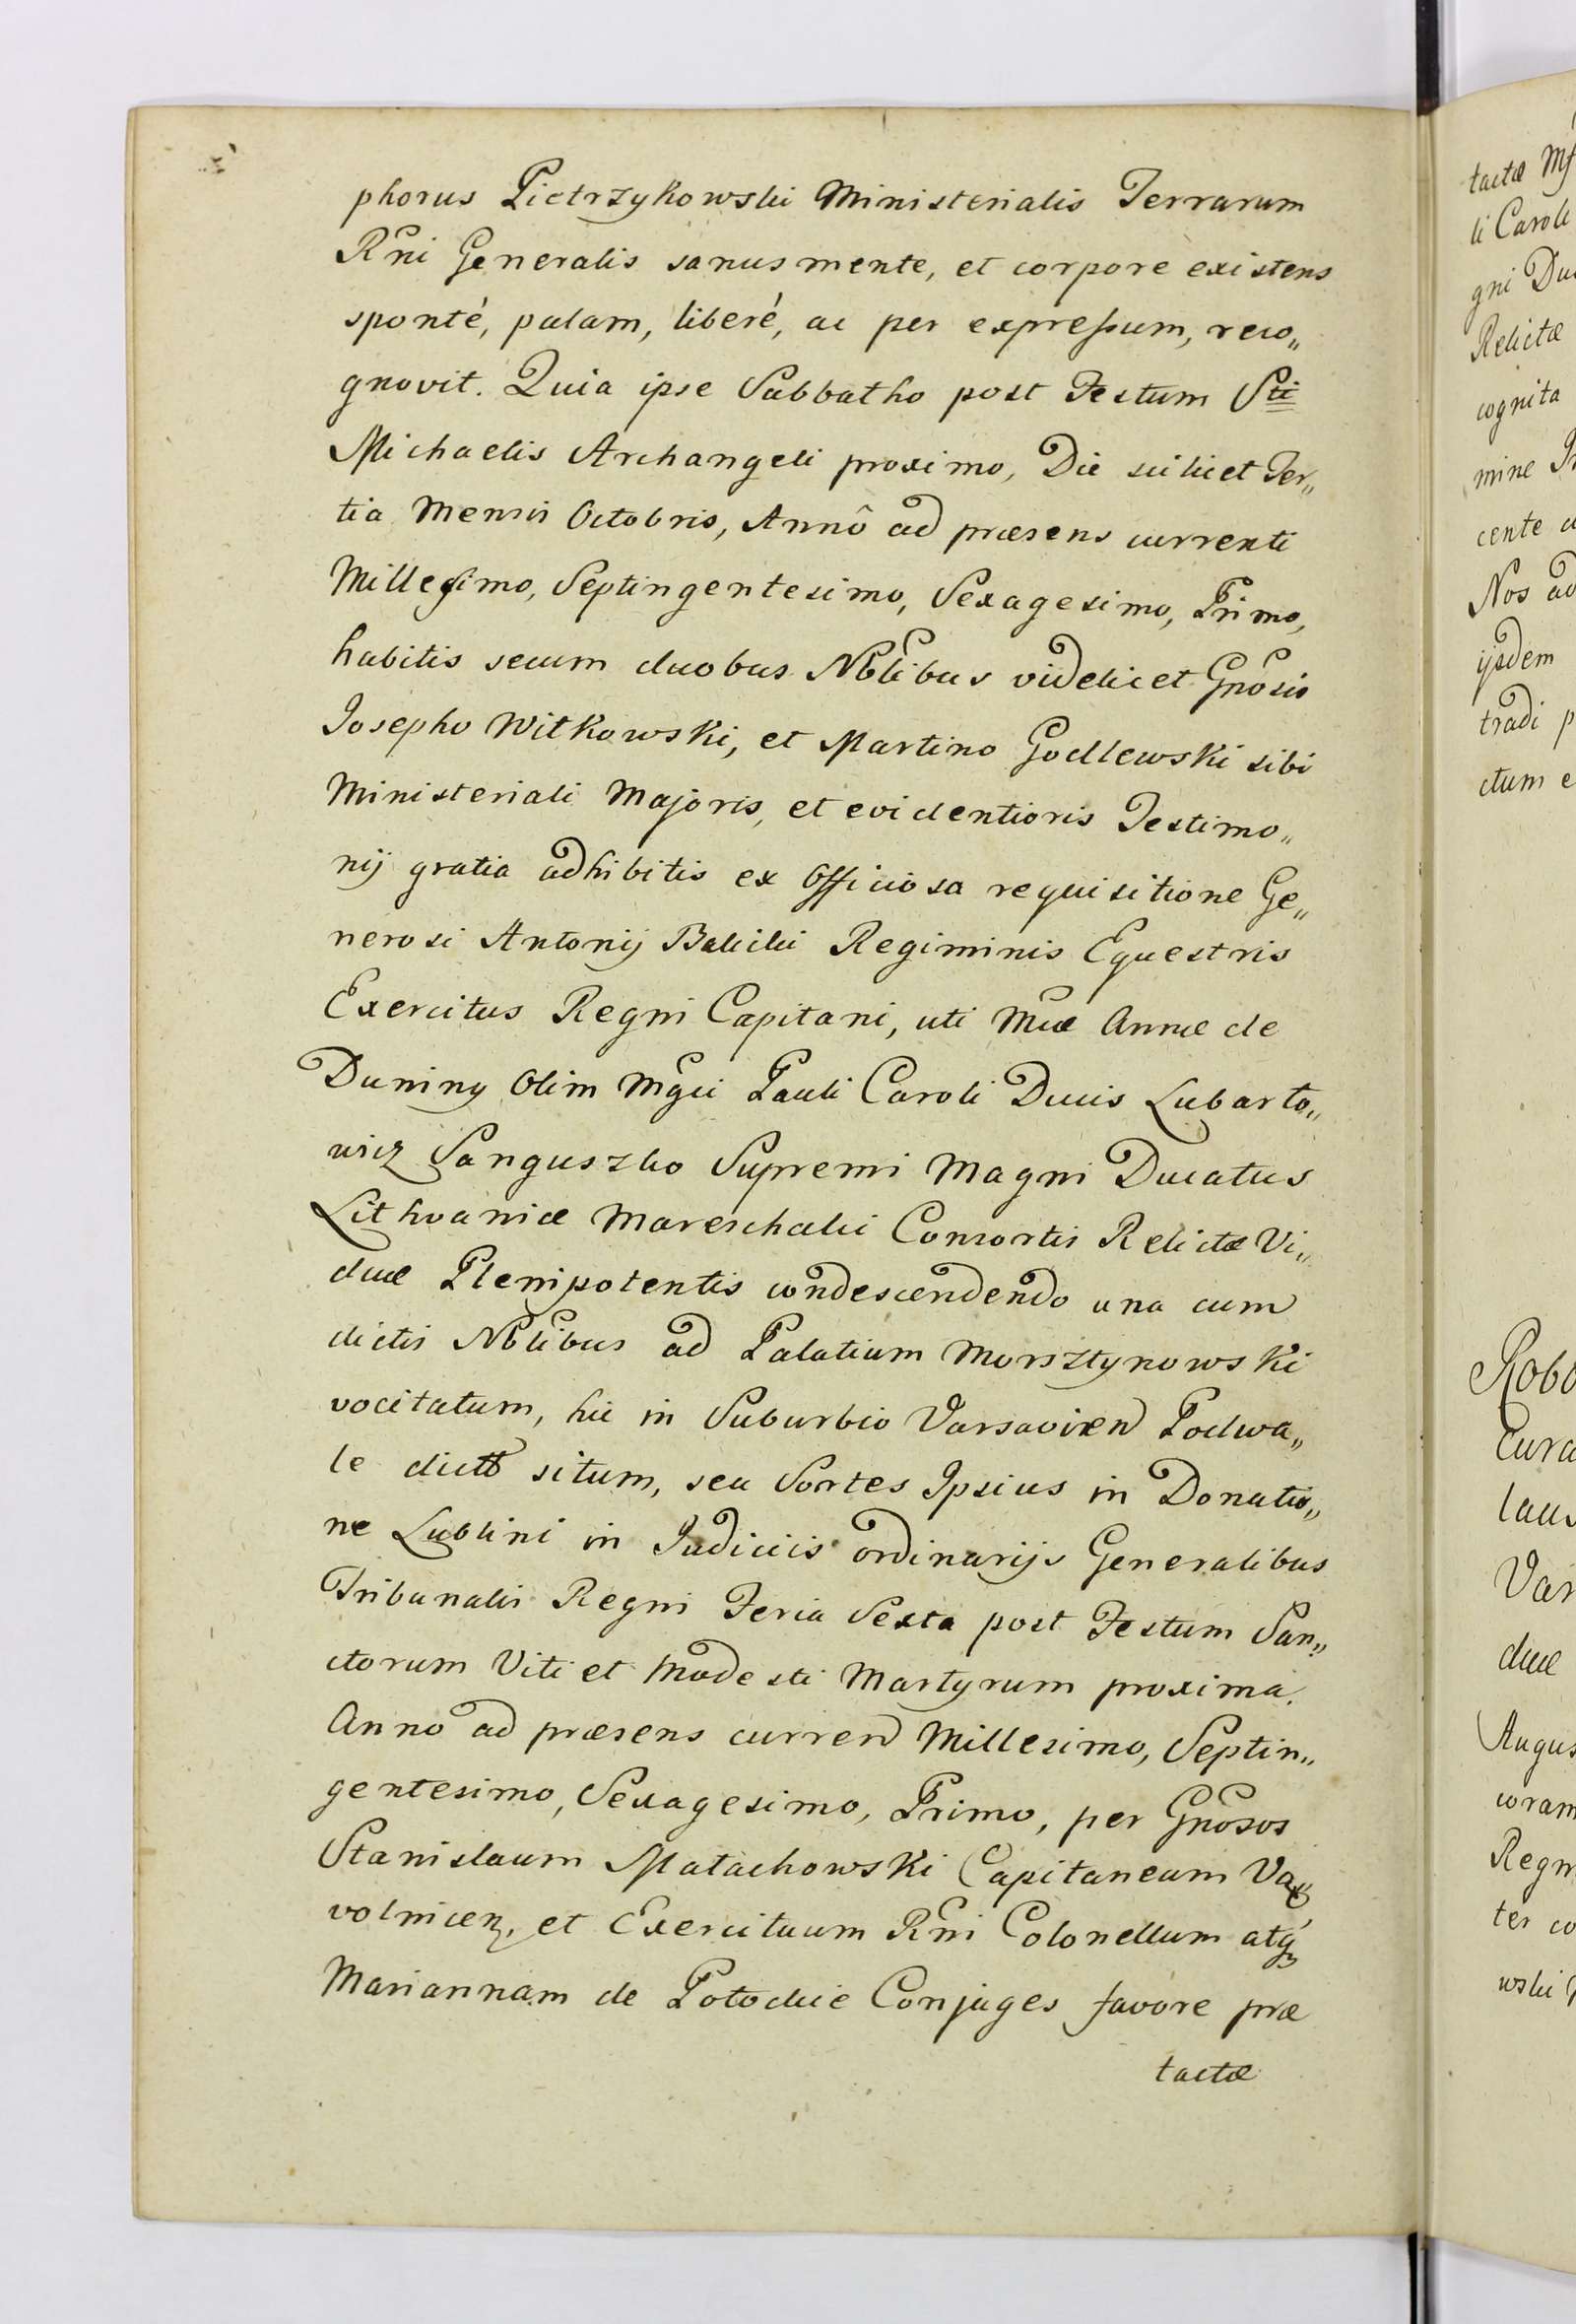 phorus Pietrzykowski Ministerialis Terrarum
Rñi Generalis sanus mente, et corpore existens
sponté, palam, liberé, ac per expressum, reco„
gnovit. Quia ipse Sabbatho post Festum Sti
Michaelis Archangeli proximo, Die scilicet Ter„
tia Mensis Octobris, Annô ad præsens currenti
Millesimo, Septingentesimo, Sexagesimo, Primo,
habitis secum duobus Nblibus videlicet Gnosis
Josepho Witkowski, et Martino Godlewski sibi
Ministeriali Majoris, et evidentioris Testimo„
nij gratia adhibitis ex Officiosa requisitione Ge„
nerosi Antonij Balicki Regiminis Equestris
Exercitus Regni Capitani, uti Mcæ Annæ de
Duniny Olim Mgci Pauli Caroli Ducis Lubarto„
wicz Sanguszko Supremi Magni Ducatus
Lithvaniæ Mareschalci Consortis Relictæ Vi„
duæ Plenipotentis condescendendo una cum
dictis Nblibus ad Palatium Morsztynowski
vocitatum, hic in Suburbio Varsavien Podwa„
le dictô situm, seu Sortes Ipsius in Donatio„
ne Lublini in Judiciis ordinarijs Generalibus
Tribunalis Regni Feria Sexta post Festum San„
ctorum Viti et Modesti Martyrum proxima.
Anno ad præsens curren Millesimo, Septin„
gentesimo, Sexagesimo, Primo, per Gnosos
Stanislaum Małachowski Capitaneum
volnicen, et Exercituum Rñi Colonellum atq
Mariannam de Potockie Conjuges favore præ
tactæ
tactæ
li Caroli
gni Duc
Relictæ
cognita
mine
cente
Nos ad
ijsdem
tradi p
ctum e
Robo
Cura
laus
Var
duæ
Augus
coram
Regn
ter co
wski